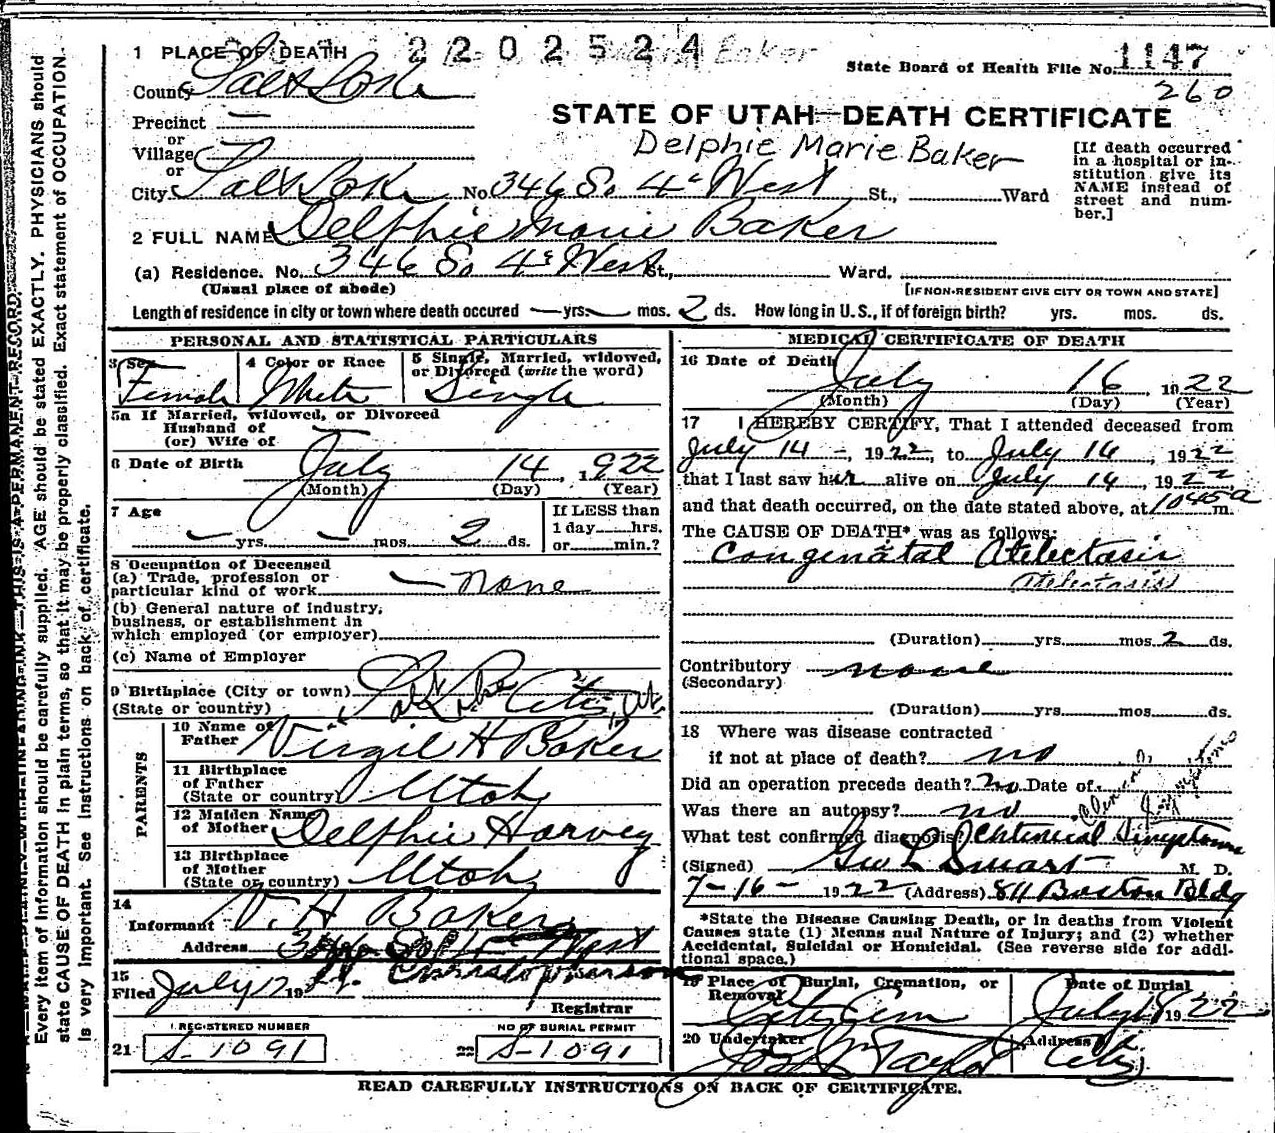 1 PLACE OF DEATH 2202524 Baker
State Board of Health File No. 1147
260
County Salt Lake
STATE OF UTAH—DEATH CERTIFICATE
Precinct —
or
Village
or
Delphie Marie Baker
[If death occurred in a hospital or in-
stitution give its
NAME instead of
street and num-
ber.]
City Salt Lake No 346 So 4th West St., Ward
2 FULL NAME Delphie Marie Baker
(a) Residence. No. 346 So 4th West St., Ward.
(Usual place of abode) [IF NON-RESIDENT GIVE CITY OR TOWN AND STATE]
Length of residence in city or town where death occured — yrs. — mos. 2 ds. How long in U.S., if of foreign birth? yrs. mos. ds.
PERSONAL AND STATISTICAL PARTICULARS
3 Sex Female
4 Color or Race White
5 Single, Married, widowed,
or Divorced (write the word)
Single
5a If Married, widowed, or Divorced
Husband of
(or) Wife of —
6 Date of Birth July 14, 1922
(Month) (Day) (Year)
7 Age — yrs. — mos. 2 ds.
If LESS than
1 day hrs.
or min.?
8 Occupation of Deceased
(a) Trade, profession or
particular kind of work — none
(b) General nature of industry,
business, or establishment in
which employed (or employer)
(c) Name of Employer
9 Birthplace (City or town) Salt Lake City, Ut.
(State or country)
PARENTS
10 Name of
Father Virgil H Baker
11 Birthplace
of Father
(State or country) Utah
12 Maiden Name
of Mother Delphie Harvey
13 Birthplace
of Mother
(State or country) Utah
14
Informant V. H Baker
Address 346 So West
15
Filed July 19
Registrar
REGISTERED NUMBER
21 S-1091
NO OF BURIAL PERMIT
22 S-1091
MEDICAL CERTIFICATE OF DEATH
16 Date of Death July 16 1922
(Month) (Day) (Year)
17 I HEREBY CERTIFY, That I attended deceased from
July 14 -, 1922, to July 16, 1922
that I last saw her alive on July 16, 1922
and that death occurred, on the date stated above, at 1045 a m.
The CAUSE OF DEATH* was as follows:
Congenatal Atelectasis
Atelectasis
(Duration) yrs. mos. 2 ds.
Contributory none
(Secondary)
(Duration) yrs. mos. ds.
18 Where was disease contracted
if not at place of death? no
Did an operation precede death? no Date of
Was there an autopsy? no
What test confirmed diagnosis? Symptoms
(Signed) Geo L Smart M. D.
7-16-1922 (Address) 811 Boston Bldg
*State the Disease Causing Death, or in deaths from Violent
Causes state (1) Means and Nature of Injury; and (2) whether
Accidental, Suicidal or Homicidal. (See reverse side for addi-
tional space.)
19 Place of Burial, Cremation, or
Removal City Cem
Date of Burial
July 18 1922
20 Undertaker Taylor
Address City
READ CAREFULLY INSTRUCTIONS ON BACK OF CERTIFICATE.
Every item of information should be carefully supplied. AGE should be stated EXACTLY. PHYSICIANS should
state CAUSE OF DEATH in plain terms, so that it may be properly classified. Exact statement of OCCUPATION
is very important. See instructions on back of certificate.
THIS IS A PERMANENT RECORD